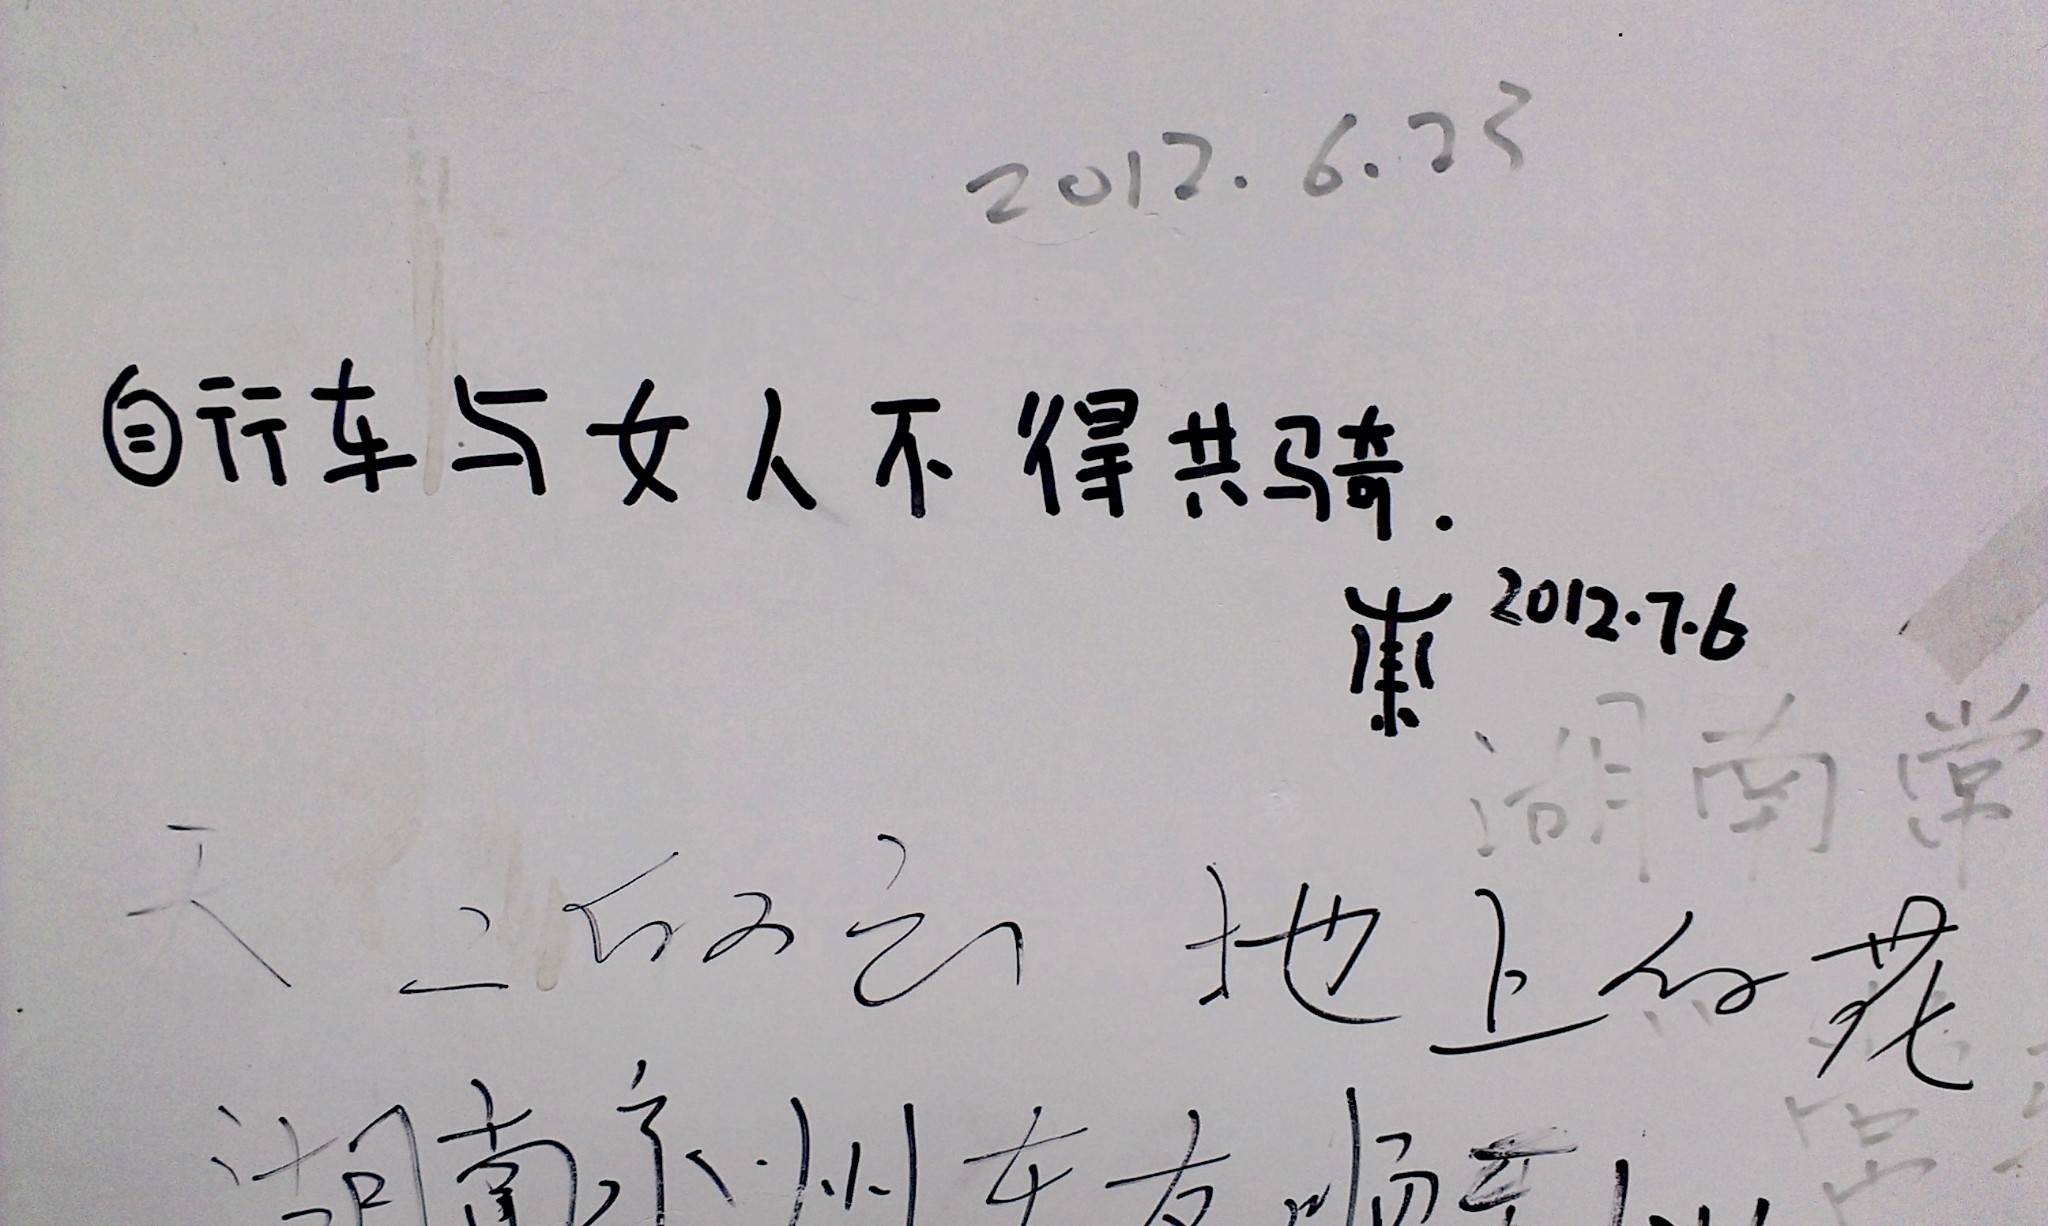 2012.6.23
自行车与女人不得共骑.
2012.7.6
湖南常
天上的云 地上的花
湖南 州车友